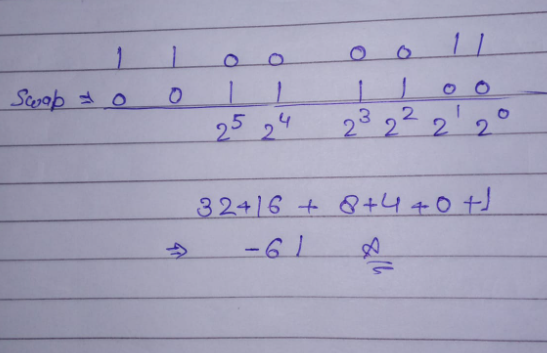 1 1 0 0 0 0 1 1
Swap ⇒ 0 0 1 1 1 1 0 0
2⁵ 2⁴ 2³ 2² 2¹ 2⁰
32+16 + 8+4+0+1
⇒ -61